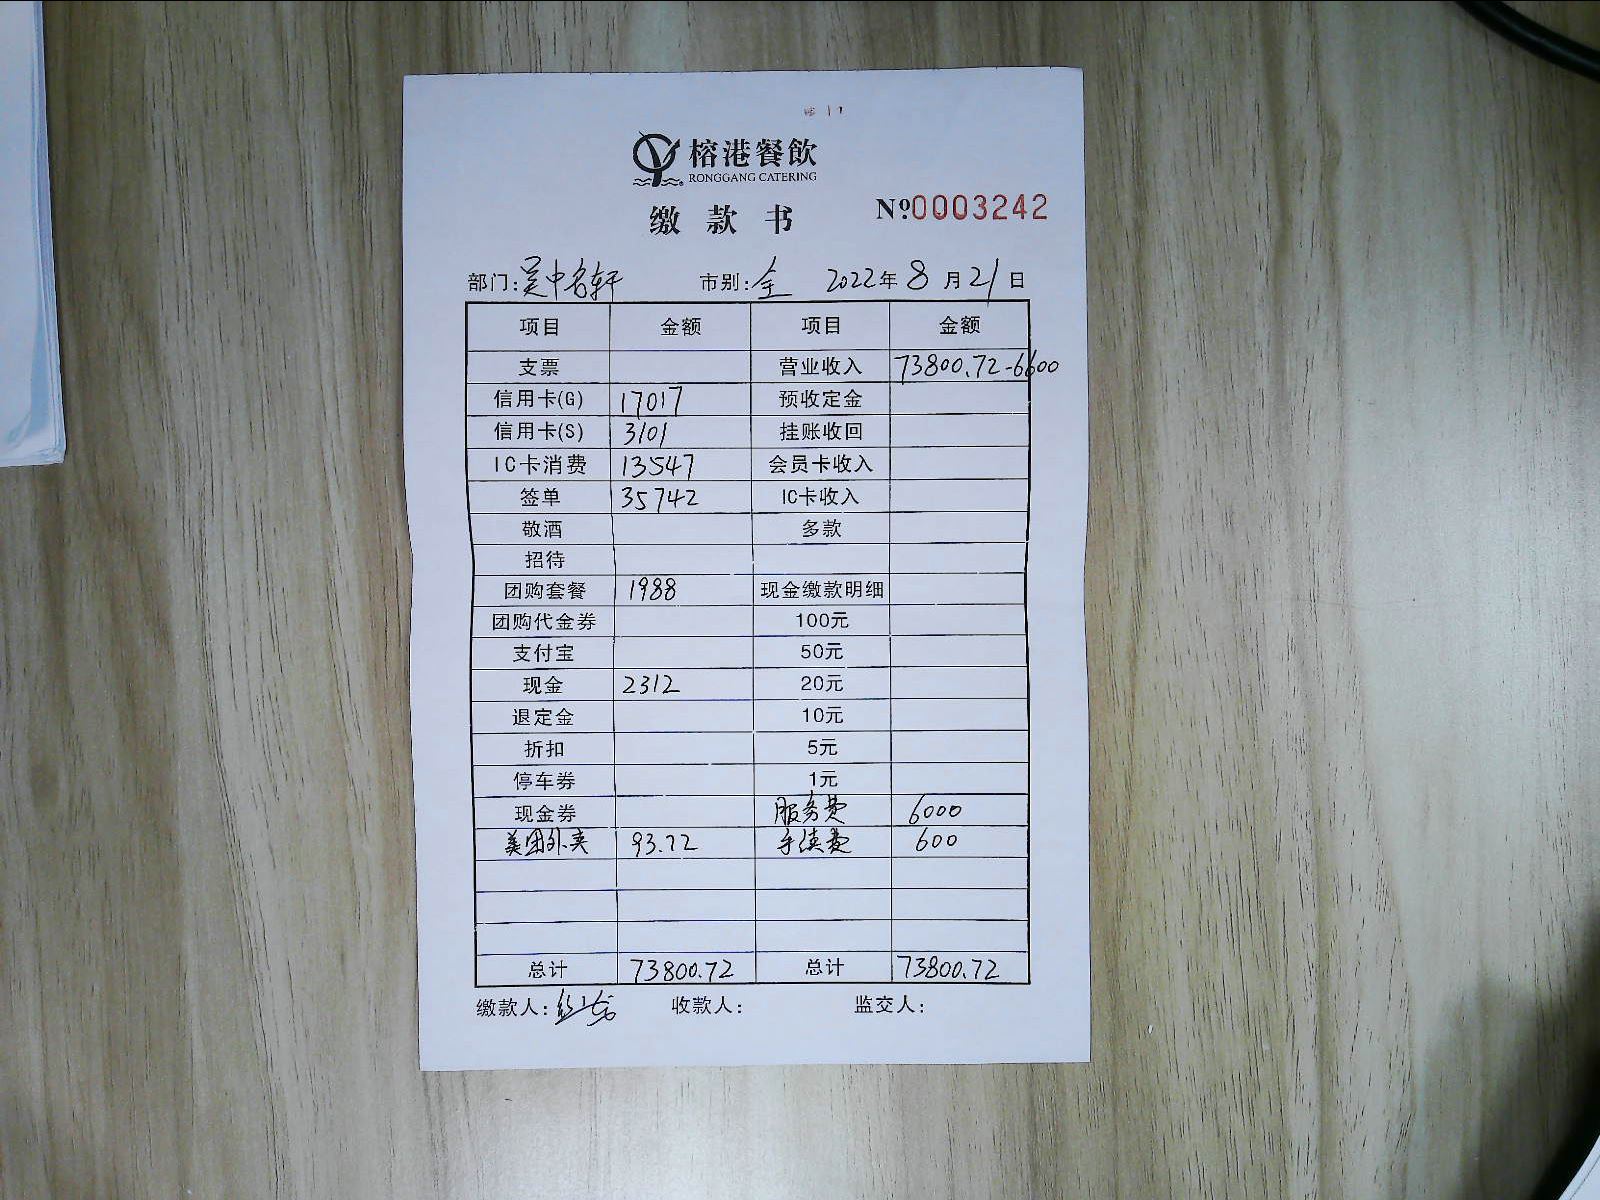 榕港餐飲
RONGGANG CATERING
缴款书 Nº0003242
部门:吴中名轩 市别:全 2022年8月21日
项目 金额 项目 金额
支票 营业收入 73800.72-6600
信用卡(G) 17017 预收定金
信用卡(S) 3101 挂账收回
IC卡消费 13547 会员卡收入
签单 35742 IC卡收入
敬酒 多款
招待
团购套餐 1988 现金缴款明细
团购代金券 100元
支付宝 50元
现金 2312 20元
退定金 10元
折扣 5元
停车券 1元
现金券 服务费 6000
美团外卖 93.72 手续费 600
总计 73800.72 总计 73800.72
缴款人: 收款人: 监交人: